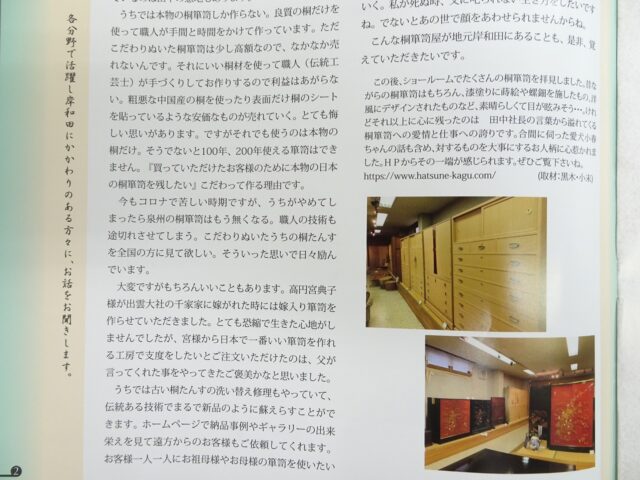 各分野で活躍し岸和田にかかわりのある方々に、お話をお聞きします。
うちでは本物の桐箪笥しか作らない。良質の桐だけを
使って職人が手間と時間をかけて作っています。ただ
こだわりぬいた桐箪笥は少し高額なので、なかなか売
れないんです。それにいい桐材を使って職人（伝統工
芸士）が手づくりしてお作りするので利益はあがらな
い。粗悪な中国産の桐を使ったり表面だけ桐のシート
を貼っているような安価なものが売れていく。とても悔
しい思いがあります。ですがそれでも使うのは本物の
桐だけ。そうでないと100年、200年使える箪笥はでき
ません。『買っていただけたお客様のために本物の日本
の桐箪笥を残したい』こだわって作る理由です。
今もコロナで苦しい時期ですが、うちがやめてし
まったら泉州の桐箪笥はもう無くなる。職人の技術も
途切れさせてしまう。こだわりぬいたうちの桐たんす
を全国の方に見て欲しい。そういった思いで日々励ん
でいます。
大変ですがもちろんいいこともあります。高円宮典子
様が出雲大社の千家家に嫁がれた時には嫁入り箪笥を
作らせていただきました。とても恐縮で生きた心地がし
ませんでしたが、宮様から日本で一番いい箪笥を作れ
る工房で支度をしたいとご注文いただけたのは、父が
言ってくれた事をやってきたご褒美かなと思いました。
うちでは古い桐たんすの洗い替え修理もやっていて、
伝統ある技術でまるで新品のように蘇えらすことがで
きます。ホームページで納品事例やギャラリーの出来
栄えを見て遠方からのお客様もご依頼してくれます。
お客様一人一人にお祖母様やお母様の箪笥を使いたい
ね。でないとあの世で顔をあわせられませんからね。
こんな桐箪笥屋が地元岸和田にあることも、是非、覚
えていただきたいです。
この後、ショールームでたくさんの桐箪笥を拝見しました。昔な
がらの桐箪笥はもちろん、漆塗りに蒔絵や螺鈿を施したもの、洋
風にデザインされたものなど、素晴らしくて目が眩みそう…、けれ
どそれ以上に心に残ったのは 田中社長の言葉から溢れてくる
桐箪笥への愛情と仕事への誇りです。合間に伺った愛犬小春
ちゃんの話も含め、対するものを大事にするお人柄に心惹かれま
した。ＨＰからその一端が感じられます。ぜひご覧下さいね。
https://www.hatsune-kagu.com/ (取材：黒木・小末)
2